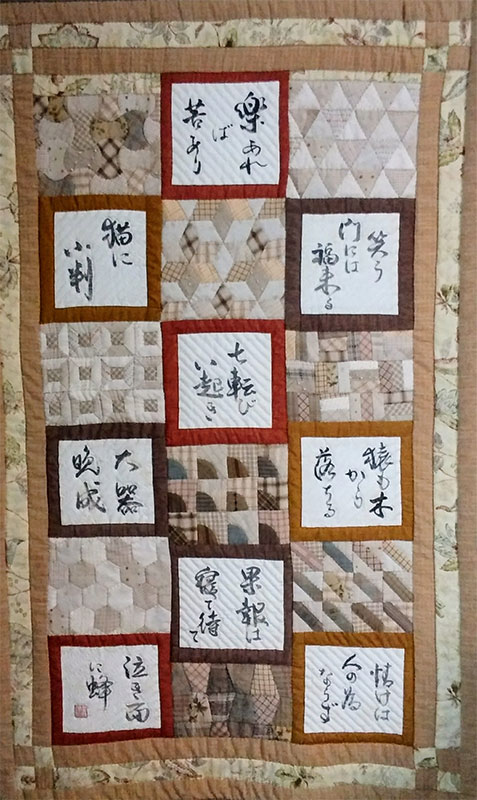 楽あれ
ば
苦あり
笑う
門には
福来る
猫に
小判
七転び
八起き
猿も木
から
落ちる
大器
晩成
果報は
寝て待て
情けは
人の為
ならず
泣き面
に蜂